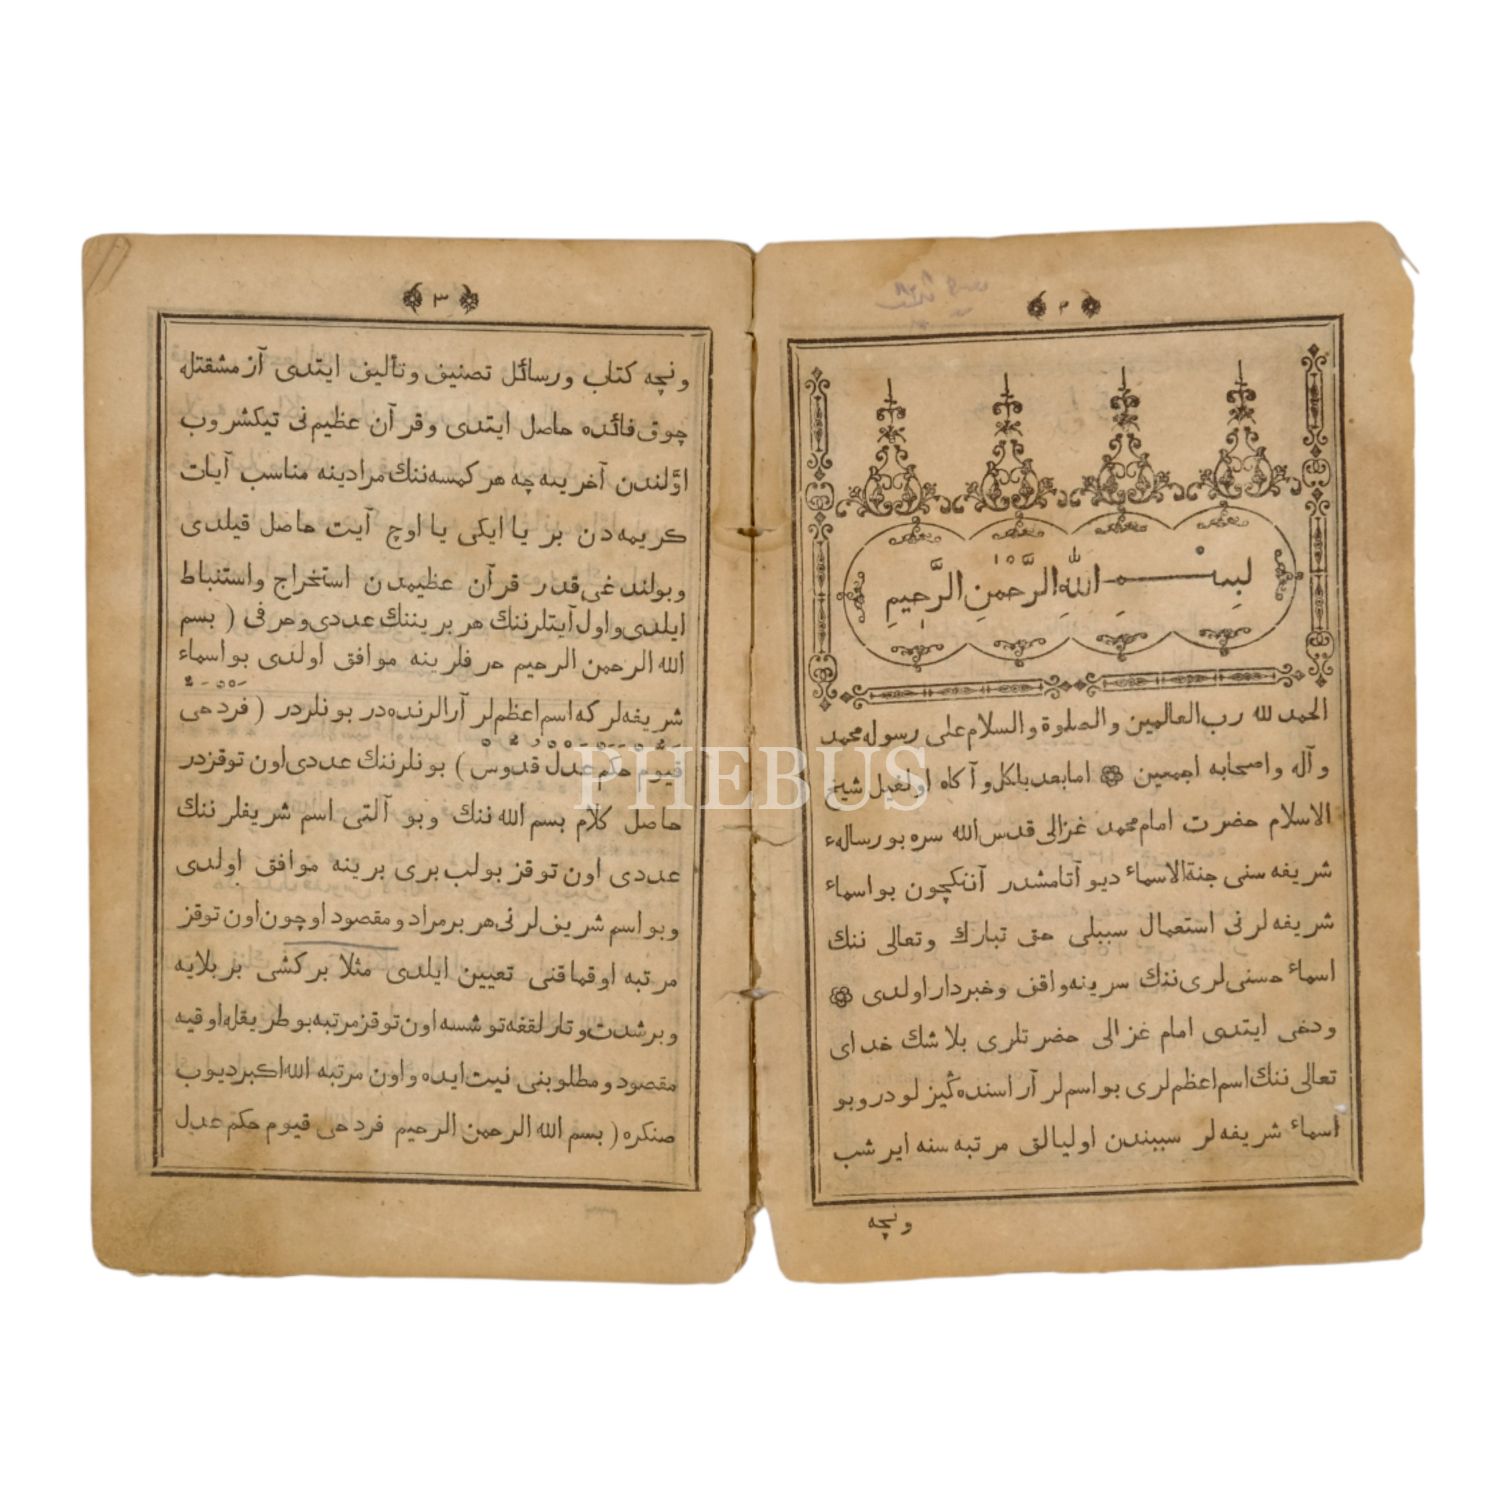 ٢
بسم الله الرَّحْمٰنِ الرَّحِيمِ
الحمد لله رب العالمين والصلوة والسلام على رسوله محمد
وآله واصحابه اجمعين اما بعد بلكل وآكاه اولغيل شيخ
الاسلام حضرت امام محمد غزالى قدس الله سره بو رسالهء
شريفه سنى جنة الاسماء ديو آتامشدر آننكچون بو اسماء
شريفه لرنى استعمال سببلى حق تبارك وتعالى ننك
اسماء حسنى لرى ننك سرينه واقف وخبردار اولدى
ودخى ايتدى امام غزالى حضرتلرى بلا شك خداى
تعالى ننك اسم اعظم لرى بو اسم لر آراسنده كيزلودر وبو
اسماء شريفه لر سببندن اوليالق مرتبه سنه ايرشب
ونچه
٣
ونچه كتاب ورسائل تصنيف وتأليف ايتدى آز مشقتله
چوق فائده حاصل ايتدى وقرآن عظيم نى تيكشروب
اوّلندن آخرينه چه هر كمسه ننك مرادينه مناسب آيات
كريمه دن بر يا ايكى يا اوچ آيت حاصل قيلدى
وبولندغى قدر قرآن عظيمدن استخراج واستنباط
ايلدى واول آيتلرننك هر بريننك عددى وحرفى ( بسم
الله الرحمن الرحيم حرفلرينه موافق اولدى بو اسماء
شريفه لر كه اسم اعظم لر آرالرنده در بونلردر ( فرد حى
قيوم حكم عدل قدوس ) بونلرننك عددى اون توقزدر
حاصل كلام بسم الله ننك وبو آلتى اسم شريفلرننك
عددى اون توقز بولب برى برينه موافق اولدى
وبو اسم شريف لرنى هر بر مراد ومقصود اوچون اون توقز
مرتبه اوقماقنى تعيين ايلدى مثلا بر كشى بر بلايه
وبر شدت وتارلقغه توشسه اون توقز مرتبه بو طريقله اوقيه
مقصود ومطلوبنى نيت ايده واون مرتبه الله اكبر ديوب
صنكره ( بسم الله الرحمن الرحيم فرد حى قيوم حكم عدل
PHEBUS